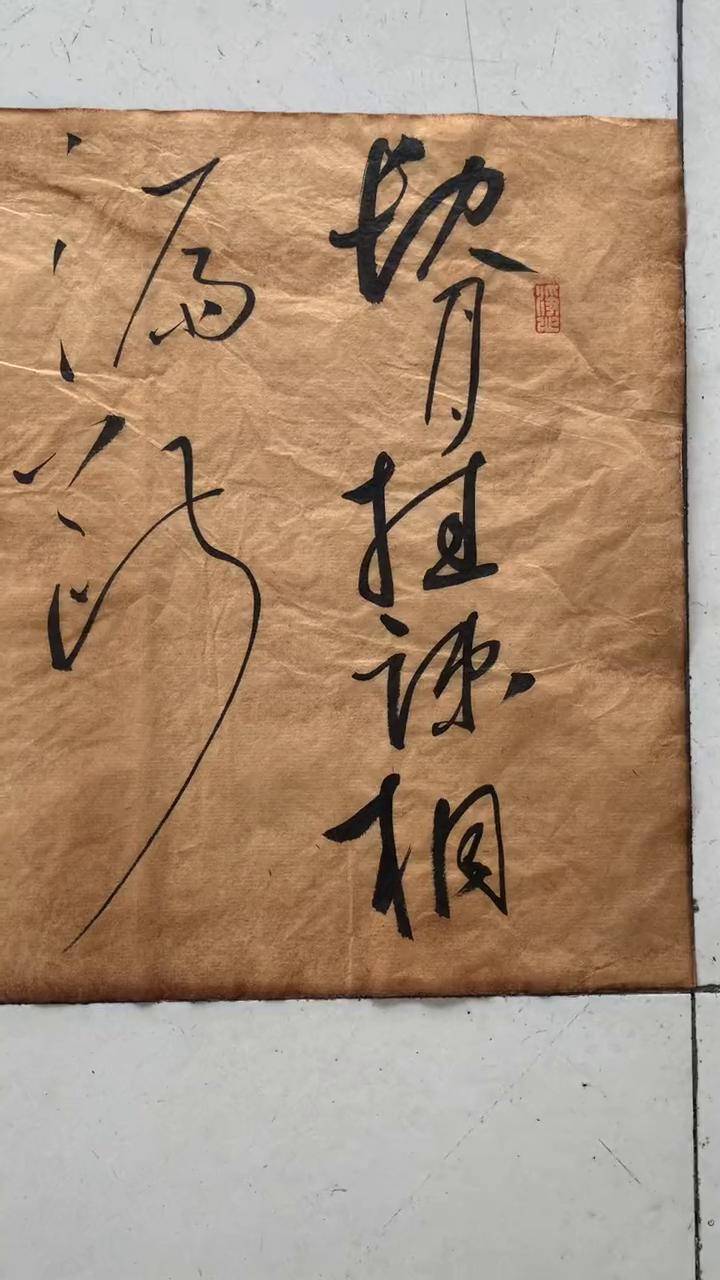 缺月挂疎桐
漏断